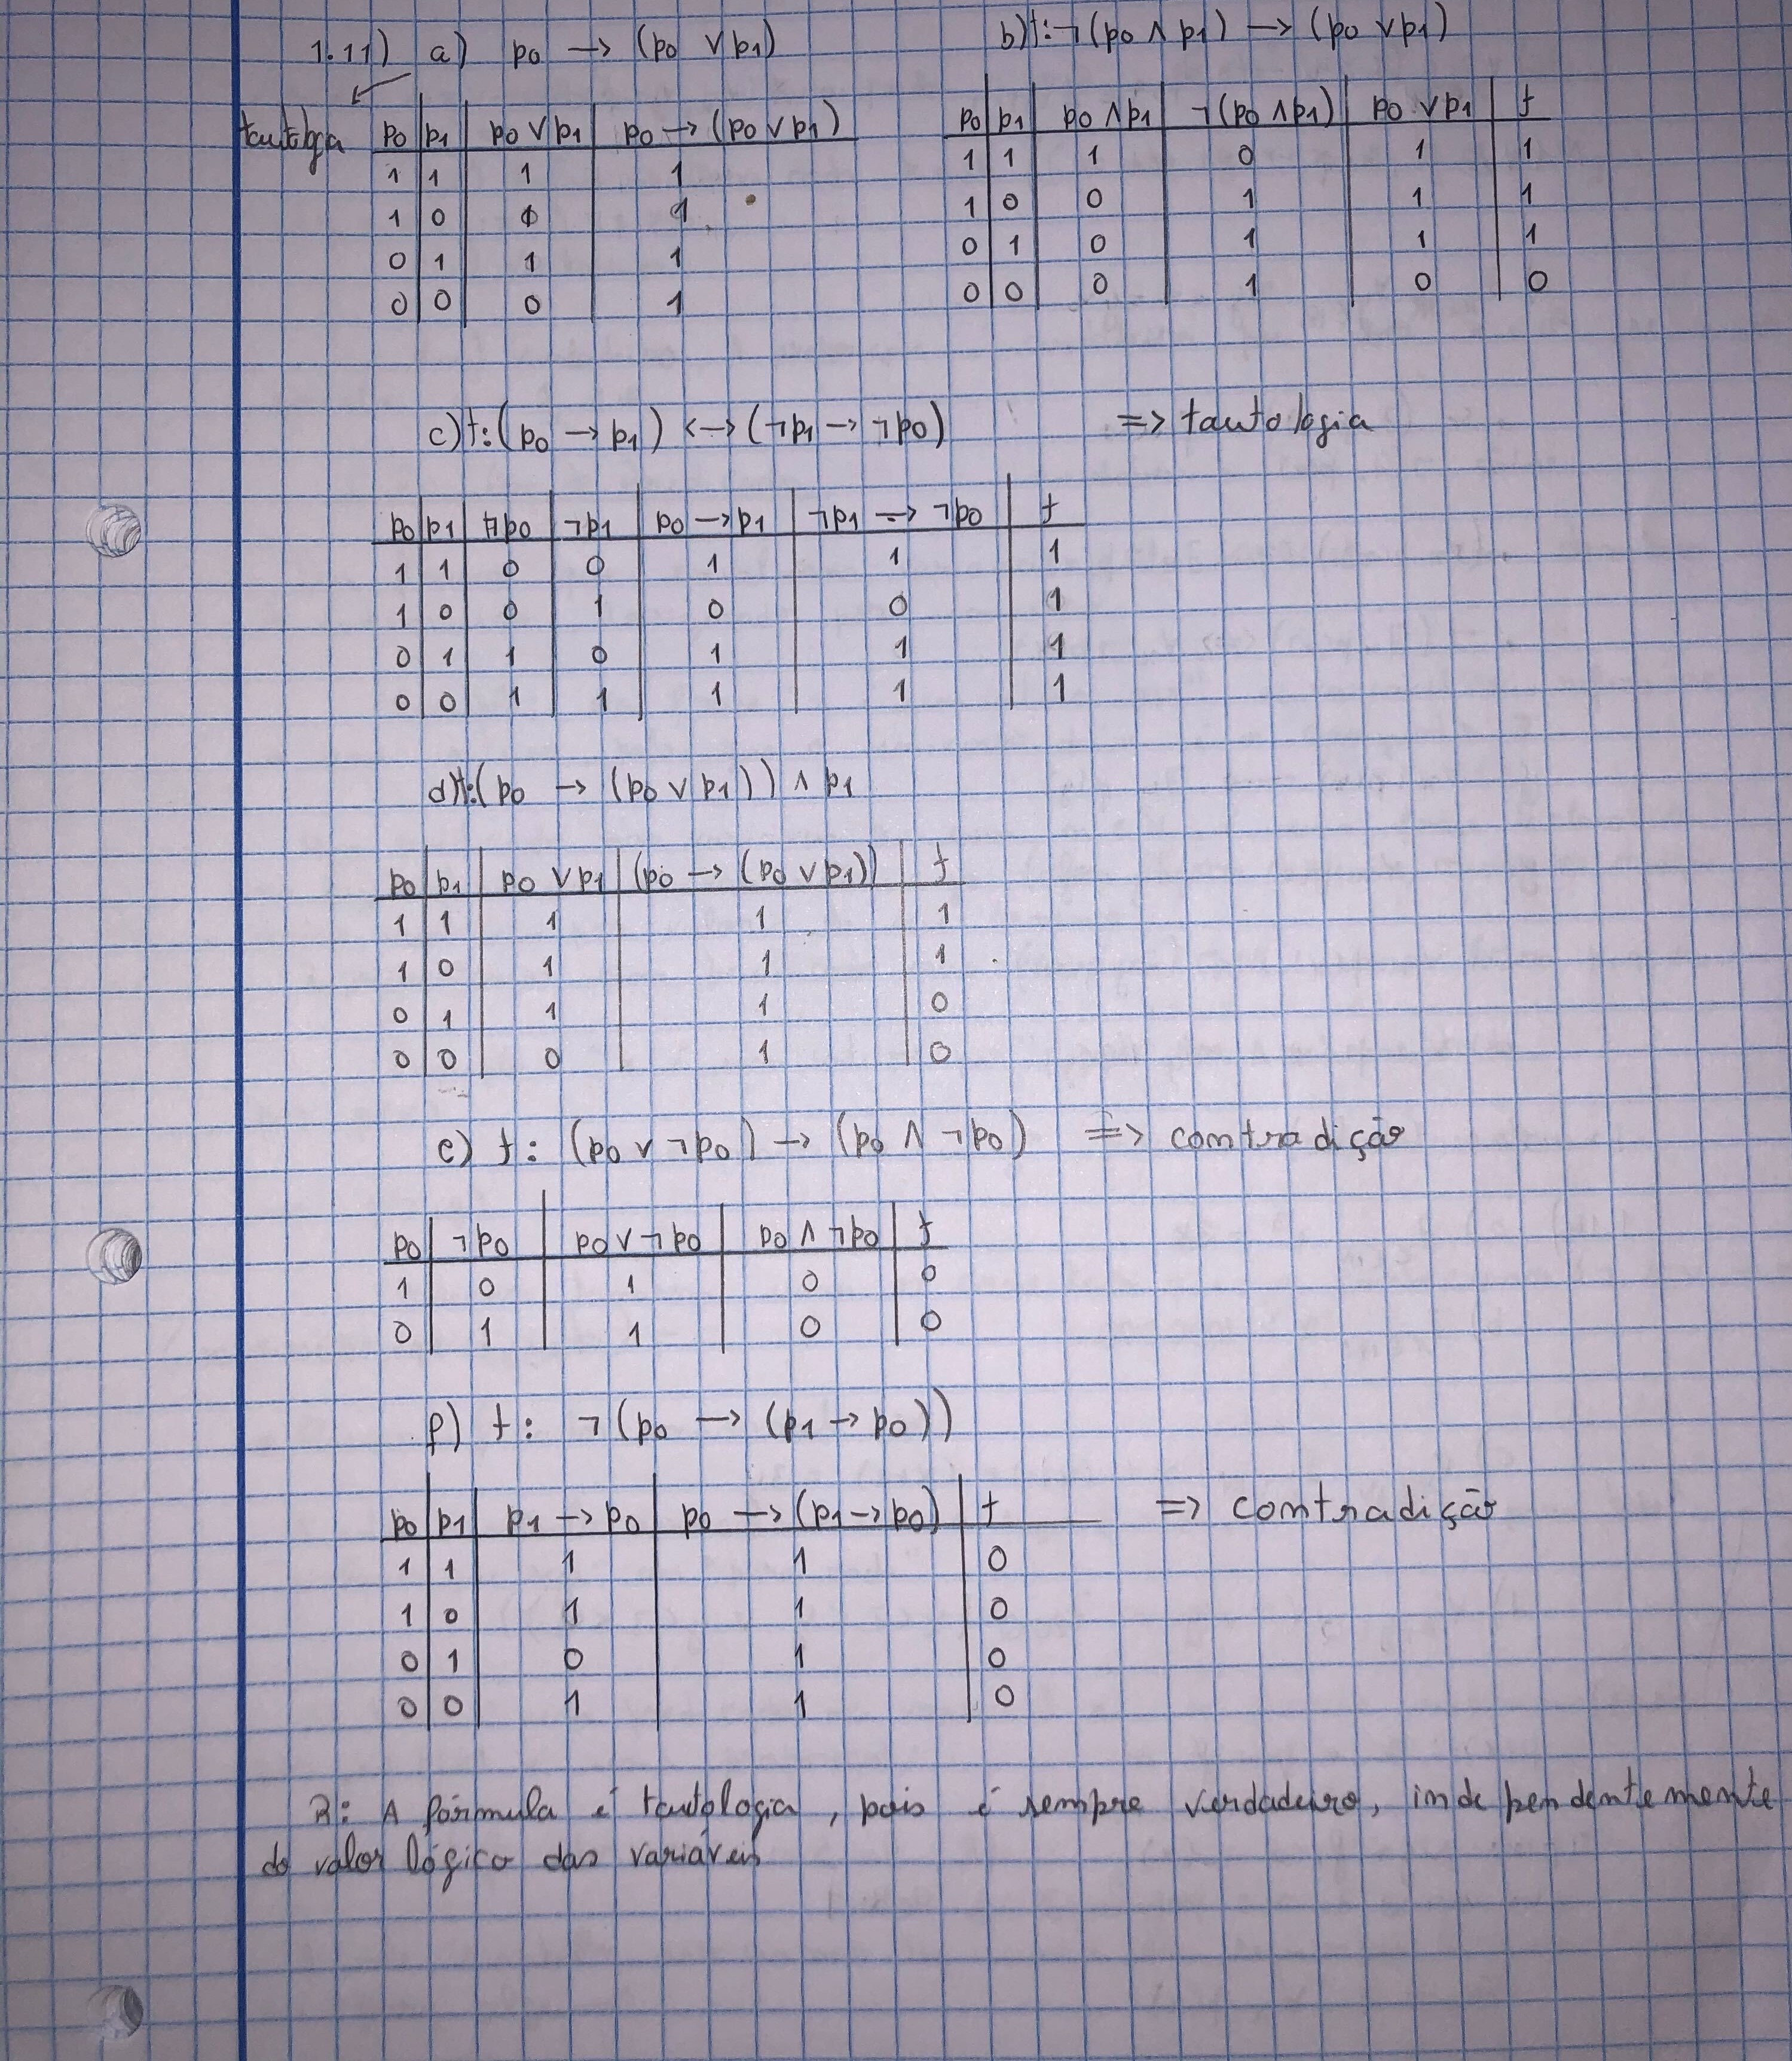 1.11) a) p0 → (p0 ∨ p1)
tautologia
p0 p1 p0 ∨ p1 p0 → (p0 ∨ p1)
1 1 1 1
1 0 1 1
0 1 1 1
0 0 0 1
b) f: ¬(p0 ∧ p1) → (p0 ∨ p1)
p0 p1 p0 ∧ p1 ¬(p0 ∧ p1) p0 ∨ p1 f
1 1 1 0 1 1
1 0 0 1 1 1
0 1 0 1 1 1
0 0 0 1 0 0
c) f: (p0 → p1) <-> (¬p1 → ¬p0) => tautologia
p0 p1 ¬p0 ¬p1 p0 → p1 ¬p1 → ¬p0 f
1 1 0 0 1 1 1
1 0 0 1 0 0 1
0 1 1 0 1 1 1
0 0 1 1 1 1 1
d) f: (p0 → (p0 ∨ p1)) ∧ p1
p0 p1 p0 ∨ p1 (p0 → (p0 ∨ p1)) f
1 1 1 1 1
1 0 1 1 1
0 1 1 1 0
0 0 0 1 0
e) f: (p0 ∨ ¬p0) → (p0 ∧ ¬p0) => contradição
p0 ¬p0 p0 ∨ ¬p0 p0 ∧ ¬p0 f
1 0 1 0 0
0 1 1 0 0
f) f: ¬(p0 → (p1 → p0))
p0 p1 p1 → p0 p0 → (p1 → p0) f => contradição
1 1 1 1 0
1 0 1 1 0
0 1 0 1 0
0 0 1 1 0
R: A fórmula é tautologia, pois é sempre verdadeiro, independentemente
do valor lógico das variáveis